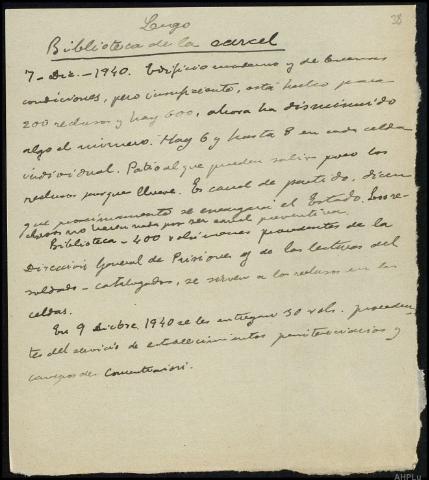 38
Lugo
Biblioteca de la carcel
7 - Dic. - 1940. Edificio moderno y de buenas
condiciones, pero insuficiente, está hecho para
200 reclusos y hay 600, ahora ha disminuido
algo el número. Hay 6 y hasta 8 en cada celda
individual. Patio al que pueden salir poco los
reclusos porque llueve. Es carcel de partido, dicen
que proximamente se encargará el Estado. Los re-
clusos no hacen nada por ser carcel preventiva.
Biblioteca - 400 volúmenes procedentes de la
Dirección General de Prisiones y de las lecturas del
soldado - catalogados, se sirven a los reclusos en las
celdas.
En 9 Dicbre. 1940 se les entregan 30 vols. proceden-
tes del servicio de establecimientos penitenciarios y
campos de concentración.
AHPLu